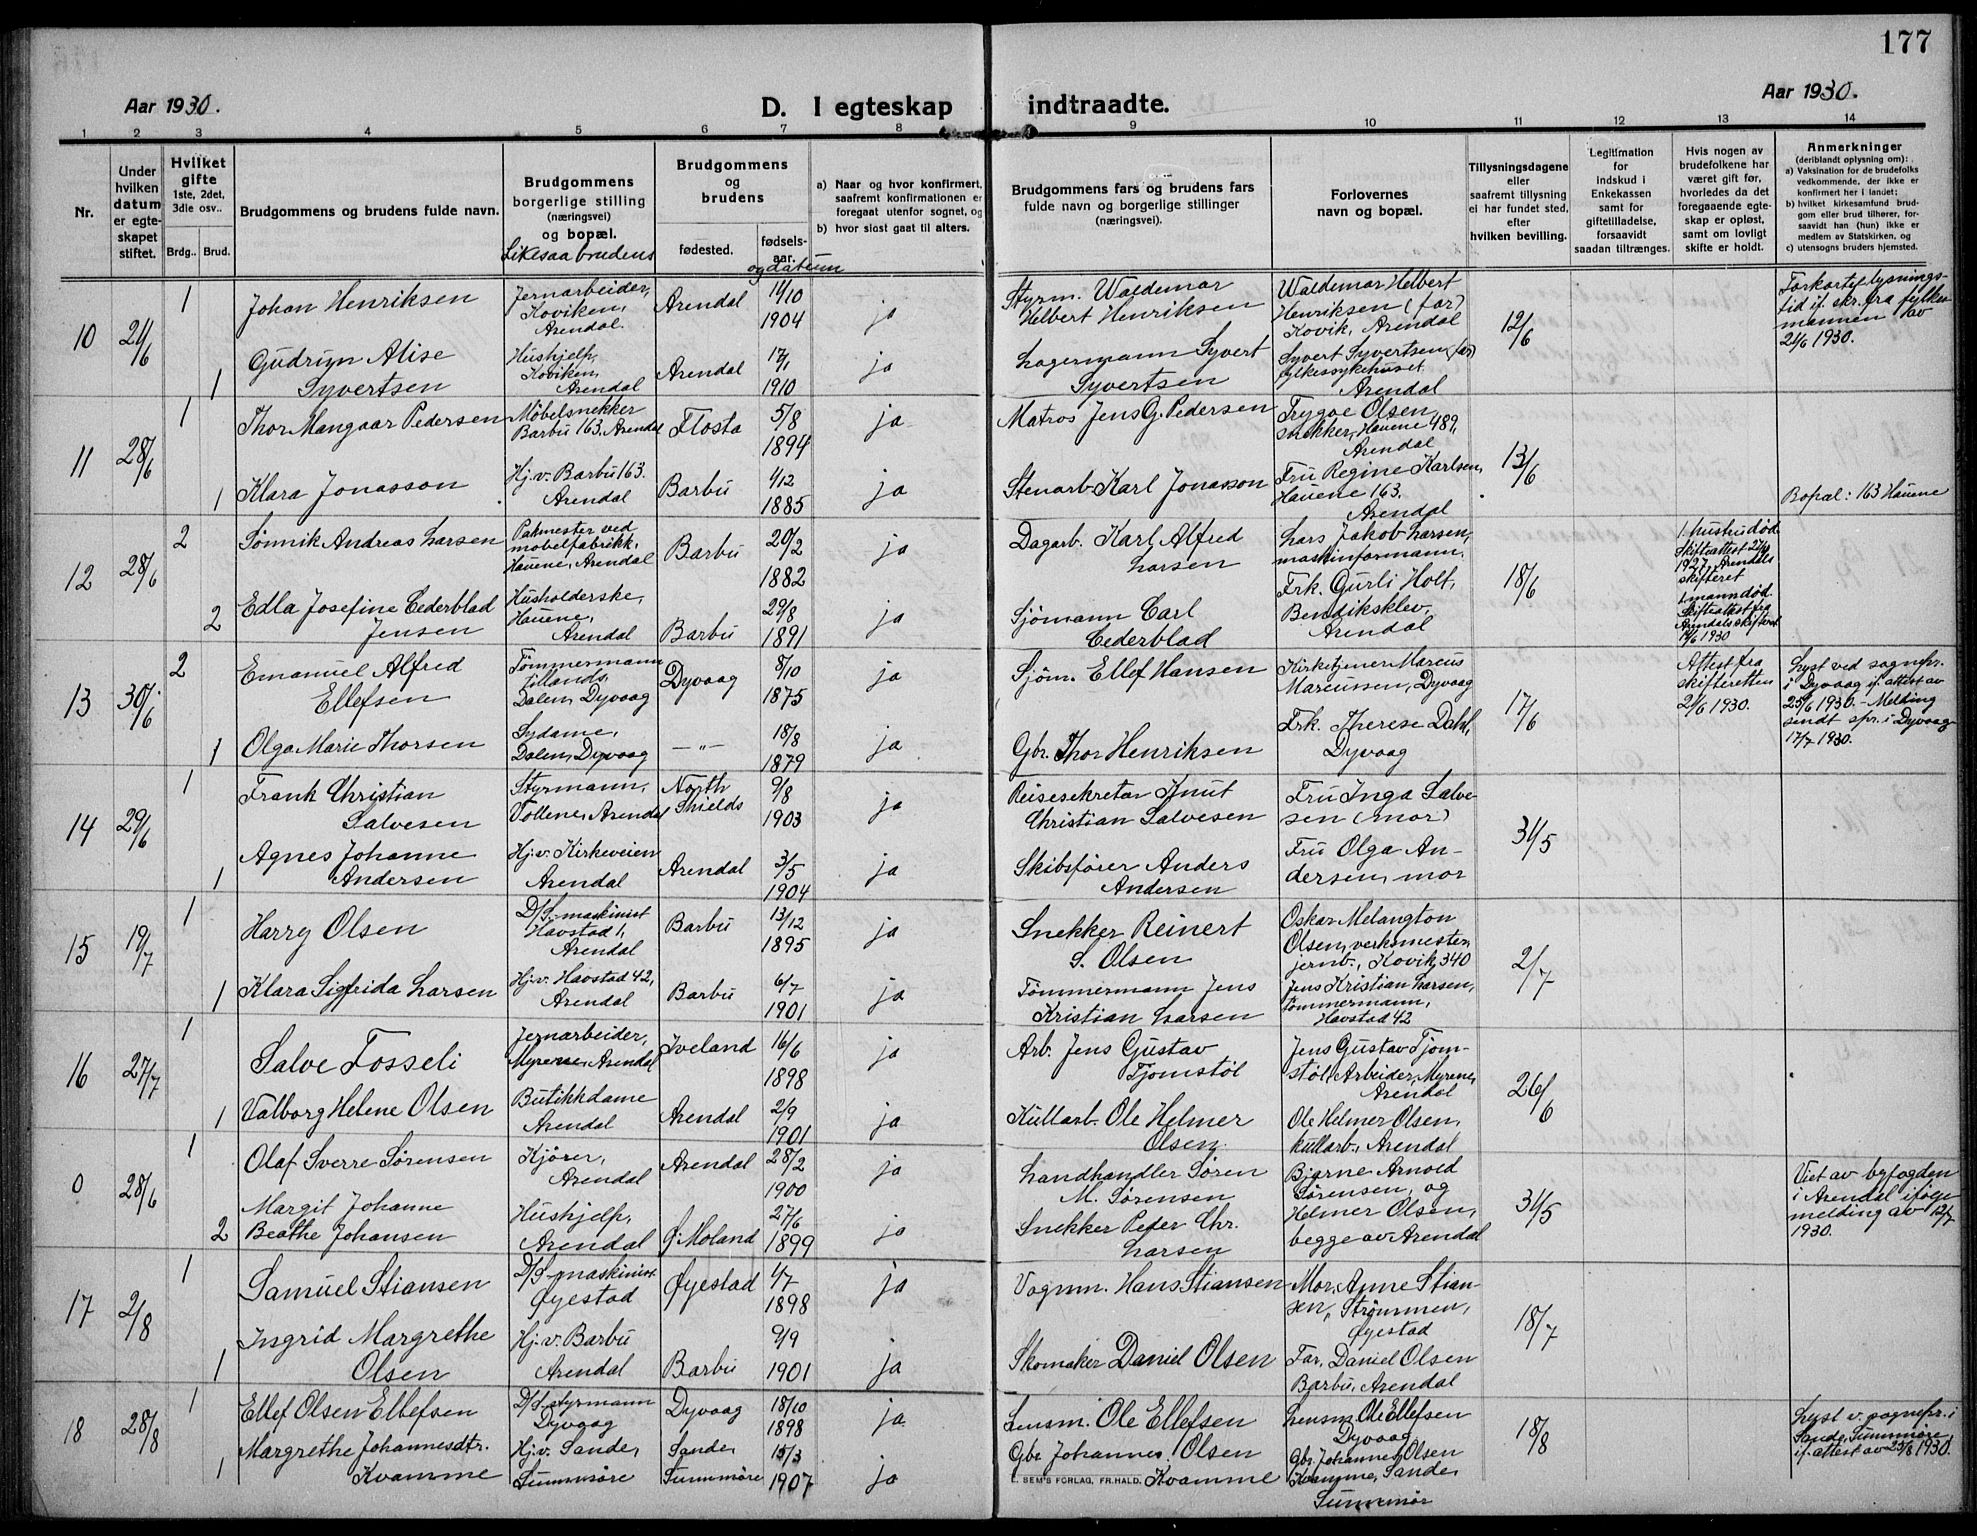 177
Aar 1930.
D. I egteskap indtraadte.
Aar 1930.
1 2 3 4 5 6 7 8 9 10 11 12 13 14
Nr.
Under hvilken datum er egteskapet stiftet.
Hvilket gifte 1ste, 2det, 3die osv..
Brdg.. Brud.
Brudgommens og brudens fulde navn.
Brudgommens borgerlige stilling (næringsvei) og bopæl.
Likesaa brudens
Brudgommens og brudens
fødested.
fødsels-aar.
og datum
a) Naar og hvor konfirmert, saafremt konfirmationen er foregaat utenfor sognet, og
b) hvor sidst gaat til alters.
Brudgommens fars og brudens fars fulde navn og borgerlige stillinger (næringsvei).
Forlovernes navn og bopæl.
Tillysningsdagene eller saafremt tillysning ei har fundet sted, efter hvilken bevilling.
Legitimation for indskud i Enkekassen samt for giftetilladelse, forsaavidt saadan tiltrænges.
Hvis nogen av brudefolkene har været gift før, hvorledes da det foregaaende egteskap er opløst, samt om lovligt skifte er holdt.
Anmerkninger
(deriblandt oplysning om):
a) Vaksination for de brudefolks vedkommende, der ikke er konfirmert her i landet;
b) hvilket kirkesamfund brudgom eller brud tilhører, forsaavidt han (hun) ikke er medlem av Statskirken, og
c) utensogns bruders hjemsted.
10 21/6
1 Johan Henriksen
Jernarbeider, Koviken, Arendal.
Arendal 14/10 1904 ja
Styrm. Waldemar Helbert Henriksen
Waldemar Helbert Henriksen (far) Kovik, Arendal
12/6
Forkortet lysningstid if. skr. fra fylkesmannen i av 21/6 1930.
1 Gudrun Alise Syvertsen
Hushjelp, Koviken, Arendal
Arendal 17/1 1910 ja
Lagermann Syvert Syvertsen
Syvert Syvertsen (far) fylkessykehuset Arendal
11 28/6
1 Thor Mangaar Pedersen
Møbelsnekker Barbu 163, Arendal
Flosta 5/8 1894 ja
Matros Jens G. Pedersen
Trygve Olsen, snekker, Hauene 489, Arendal
13/6
1 Klara Jonasson
Hj. v. Barbu 163. Arendal
Barbu 4/12 1885 ja
Stenarb. Karl Jonasson
Fru Regine Karlsen, Hauene 163. Arendal
Bopæl: 163 Hauene
12 28/6
2 Sønnik Andreas Larsen
Pakmester ved møbelfabrikk, Hauene, Arendal
Barbu 20/2 1882 ja
Dagarb. Karl Alfred Larsen
Lars Jakob Larsen, maskinformann.
18/6
1. hustru død Skifteattest 1927, Arendals skifteret
2 Edla Josefine Cederblad Jensen
Husholderske, Hauene, Arendal
Barbu 29/8 1891 ja
Sjømann Carl Cederblad
Frk. Gurli Holt, Bendiksklev, Arendal
1. mann død. Skifteattest fra Arendals skifteret 1930
13 30/6
2 Emanuel Alfred Ellefsen
Tømmermann tillands, Dalen, Dyvaag
Dyvaag 8/10 1875 ja
Sjøm. Ellef Hansen
Kirketjener Marcus Marcussen, Dyvaag
17/6
Attest fra skifteretten 2/6 1930.
Lyst ved sognepr. i Dyvaag if. attest av 25/6 1930. - Melding sendt spr. i Dyvaag 17/7 1930.
1 Olga Marie Thorsen
Sydame, Dalen, Dyvaag
— „ — 18/8 1879 ja
Gbr. Thor Henriksen
Frk. Therese Dahl, Dyvaag
14 29/6
1 Frank Christian Salvesen
Styrmann, Vollene, Arendal
North Shields 9/8 1903 ja
Reisesekretær Knut Christian Salvesen
Fru Inga Salvesen (mor)
31/5
1 Agnes Johanne Andersen
Hj. v. Kirkeveien Arendal
Arendal 3/5 1904 ja
Skibsfører Anders Andersen
Fru Olga Andersen, mor
15 19/7
1 Harry Olsen
D/S. maskinist Havstad 1, Arendal
Barbu 13/12 1895 ja
Snekker Reinert S. Olsen
Oskar Melangton Olsen, verksmester, jernb., Kovik, 340
2/7
1 Klara Sigfrida Larsen
Hj. v. Havstad 42, Arendal
Barbu 6/7 1901 ja
Tømmermann Jens Kristian Larsen
Jens Kristian Larsen, tømmermann, Havstad 42
16 27/7
1 Salve Fosseli
Jernarbeider, Myrene, Arendal
Iveland 16/6 1898 ja
Arb. Jens Gustav Tjomstøl
Jens Gustav Tjomstøl, Arbeider, Myrene, Arendal
26/6
1 Valborg Helene Olsen
Butikkdame Arendal
Arendal 2/9 1901 ja
Kullarb. Ole Helmer Olsen
Ole Helmer Olsen, kullarb., Arendal
0 28/6
1 Olaf Sverre Sørensen
Kjører, Arendal
Arendal 28/2 1900 ja
Landhandler Søren M. Sørensen
Bjarne Arnold Sørensen, og
31/5
Viet av byfogden i Arendal ifølge melding av 12/7 1930.
2 Margit Johanne Beathe Johansen
Hushjelp, Arendal
Ø. Moland 27/6 1899 ja
Snekker Peter Chr. Larsen
Helmer Olsen, begge av Arendal
17 2/8
1 Samuel Stiansen
D/S. maskinist Øyestad
Øyestad 4/7 1898 ja
Vognm. Hans Stiansen
Mor, Anne Stiansen, Strømmen, Øyestad
18/7
1 Ingrid Margrethe Olsen
Hj. v. Barbu Arendal
Barbu 9/9 1901 ja
Skomaker Daniel Olsen
Far, Daniel Olsen Barbu, Arendal
18 28/8
1 Ellef Olsen Ellefsen
D/S. styrmann Dyvaag
Dyvaag 18/10 1898 ja
Lensm. Ole Ellefsen
Lensm. Ole Ellefsen Dyvaag
18/8
Lyst v. sognepr. i Sande, Sunnmøre if. attest av 25/8 1930.
1 Margrethe Johannesdtr. Kvamme
Hj. v. Sande, Sunnmøre
Sande, Sunnmøre 15/3 1907 ja
Gbr. Johannes Olsen Kvamme
Gbr. Johannes Olsen Kvamme, Sande, Sunnmør
E. SEM'S FORLAG, FR.HALD.